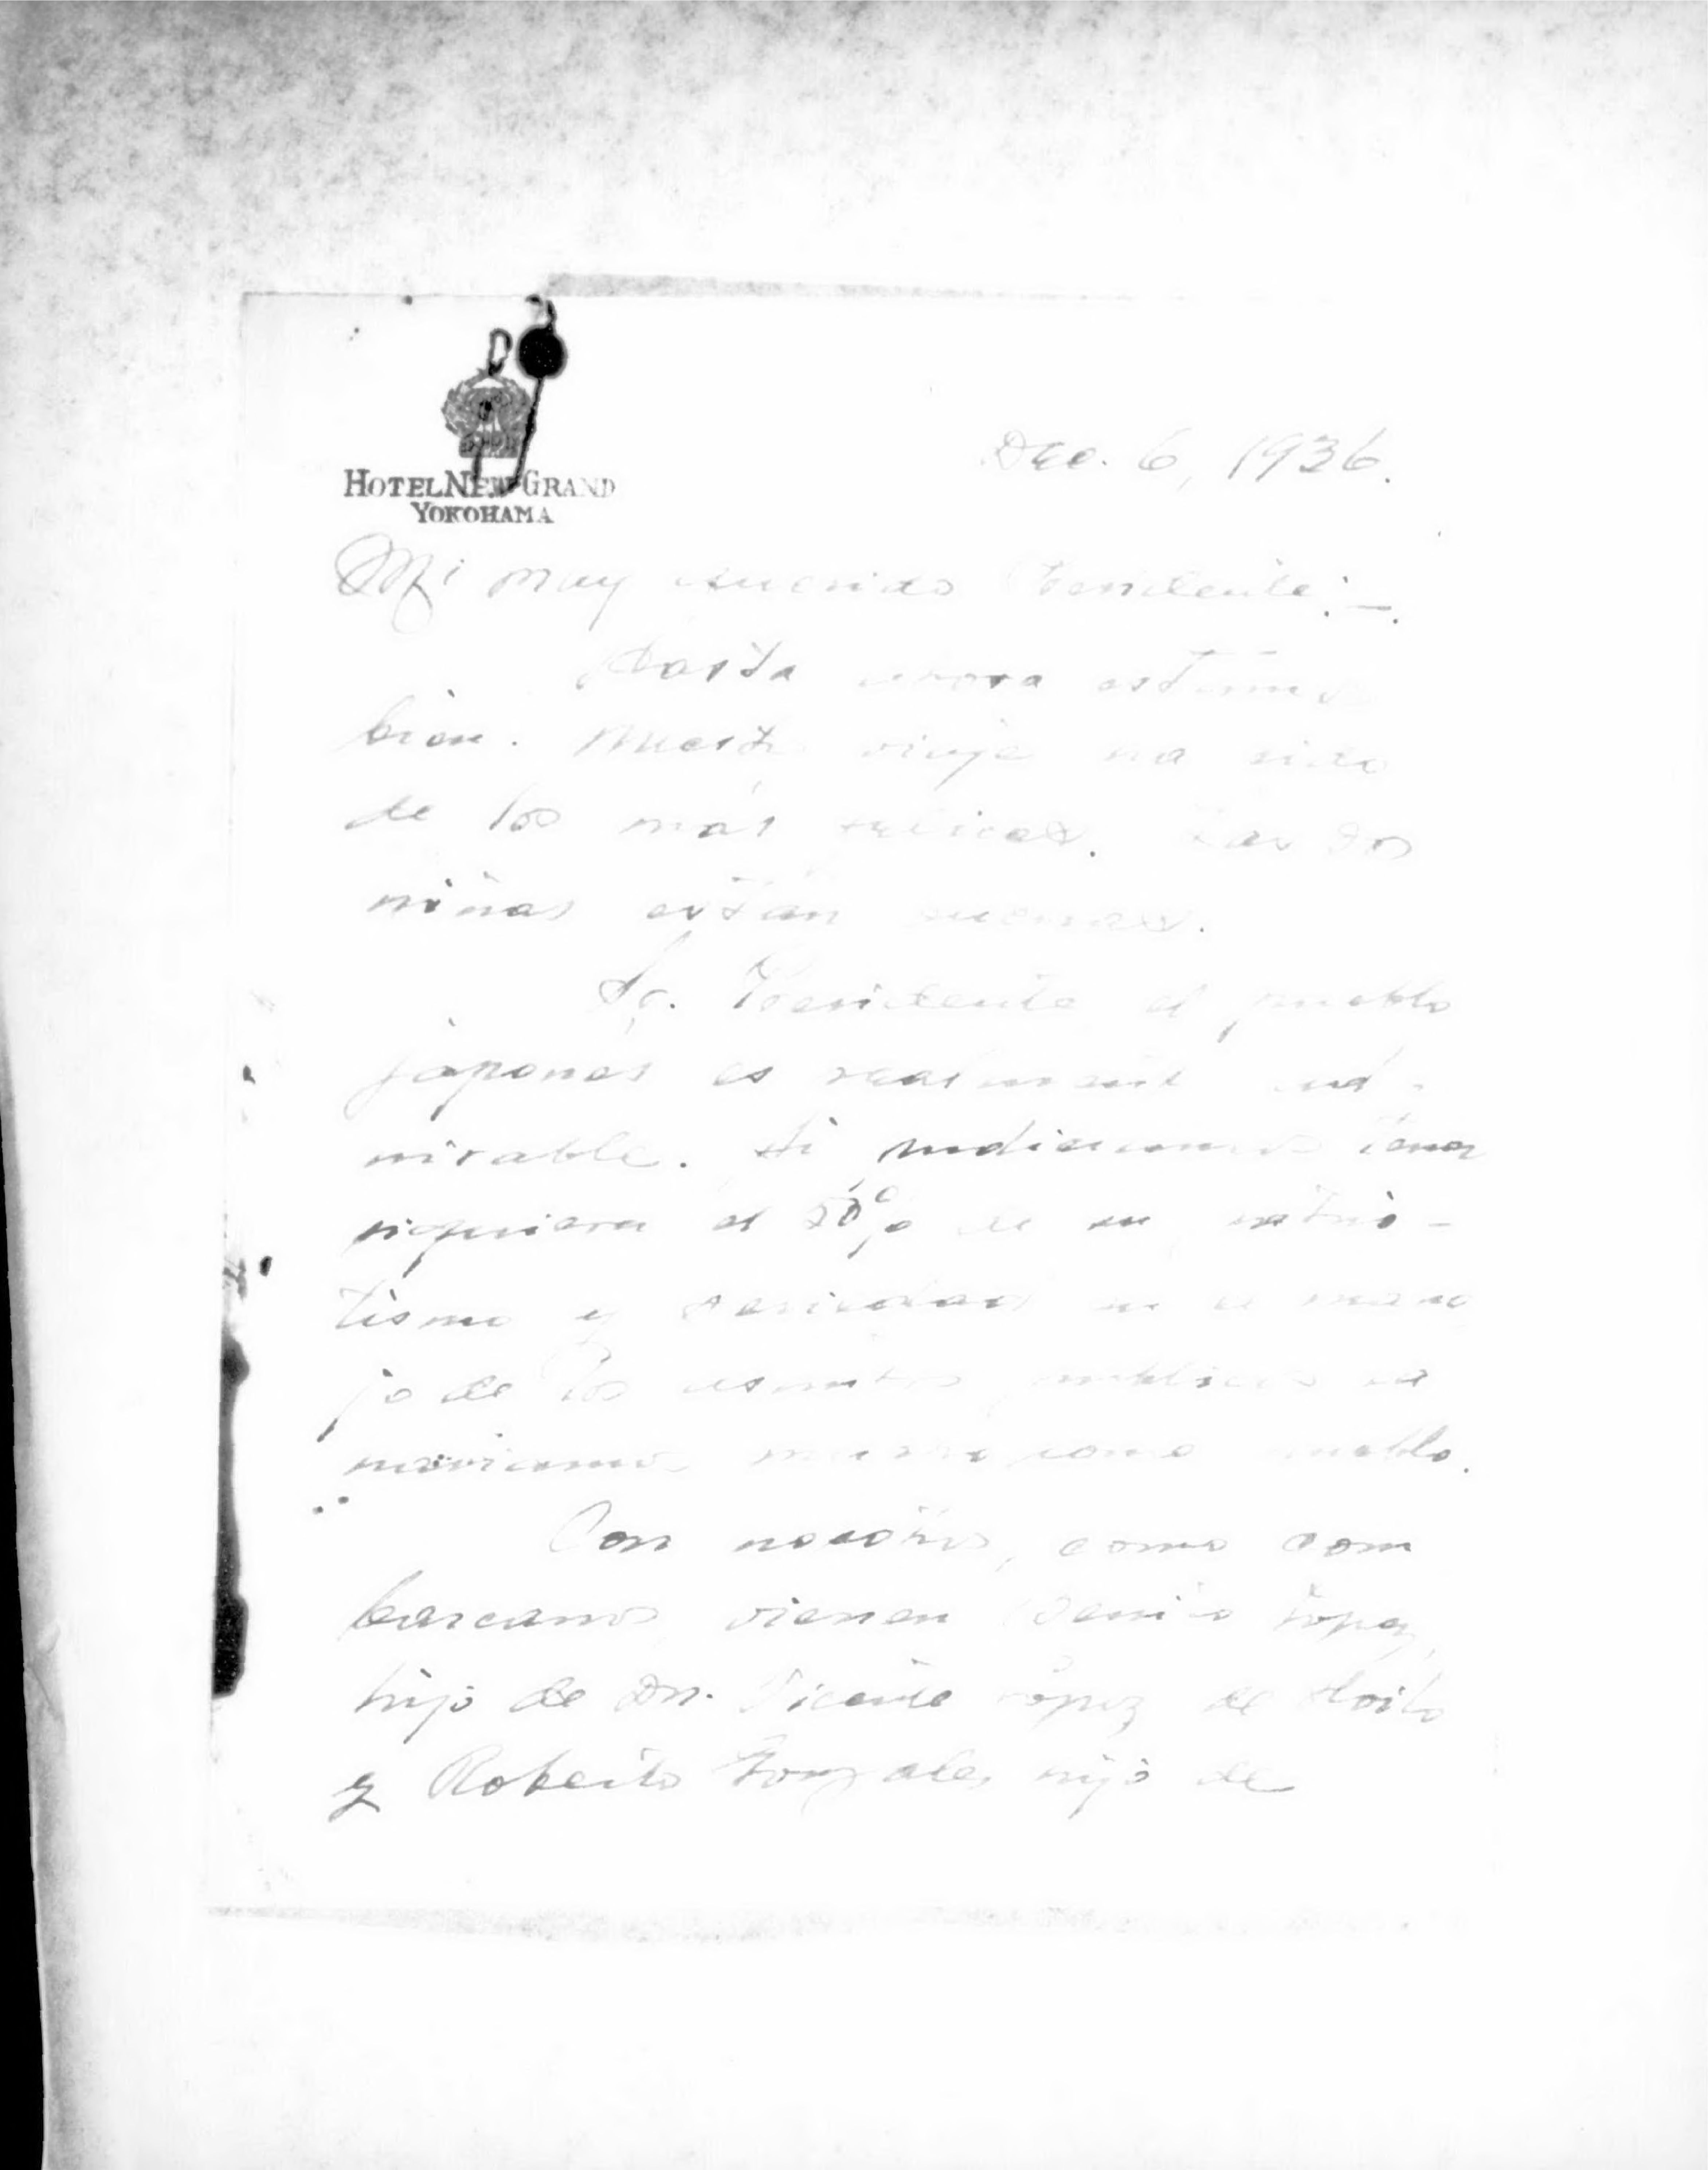 HOTEL NEW GRAND
YOKOHAMA
Dec. 6, 1936.
Mi muy querido Presidente:—.
Hasta ahora estamos
bien. Nuestro viaje ha sido
de los más felices. Las dos
niñas están buenas.
Sr. Presidente el pueblo
japones es realmente ad-
mirable. Si pudieramos tener
siquiera el 50% de su patrio-
tismo y seriedad en el mane
jo de los asuntos publicos
mucho como pueblo.
Con nosotros, como com
barcanos vienen Benito Lopez,
hijo de Dn. Vicente Lopez de Iloilo
y Roberto Gonzales hijo de